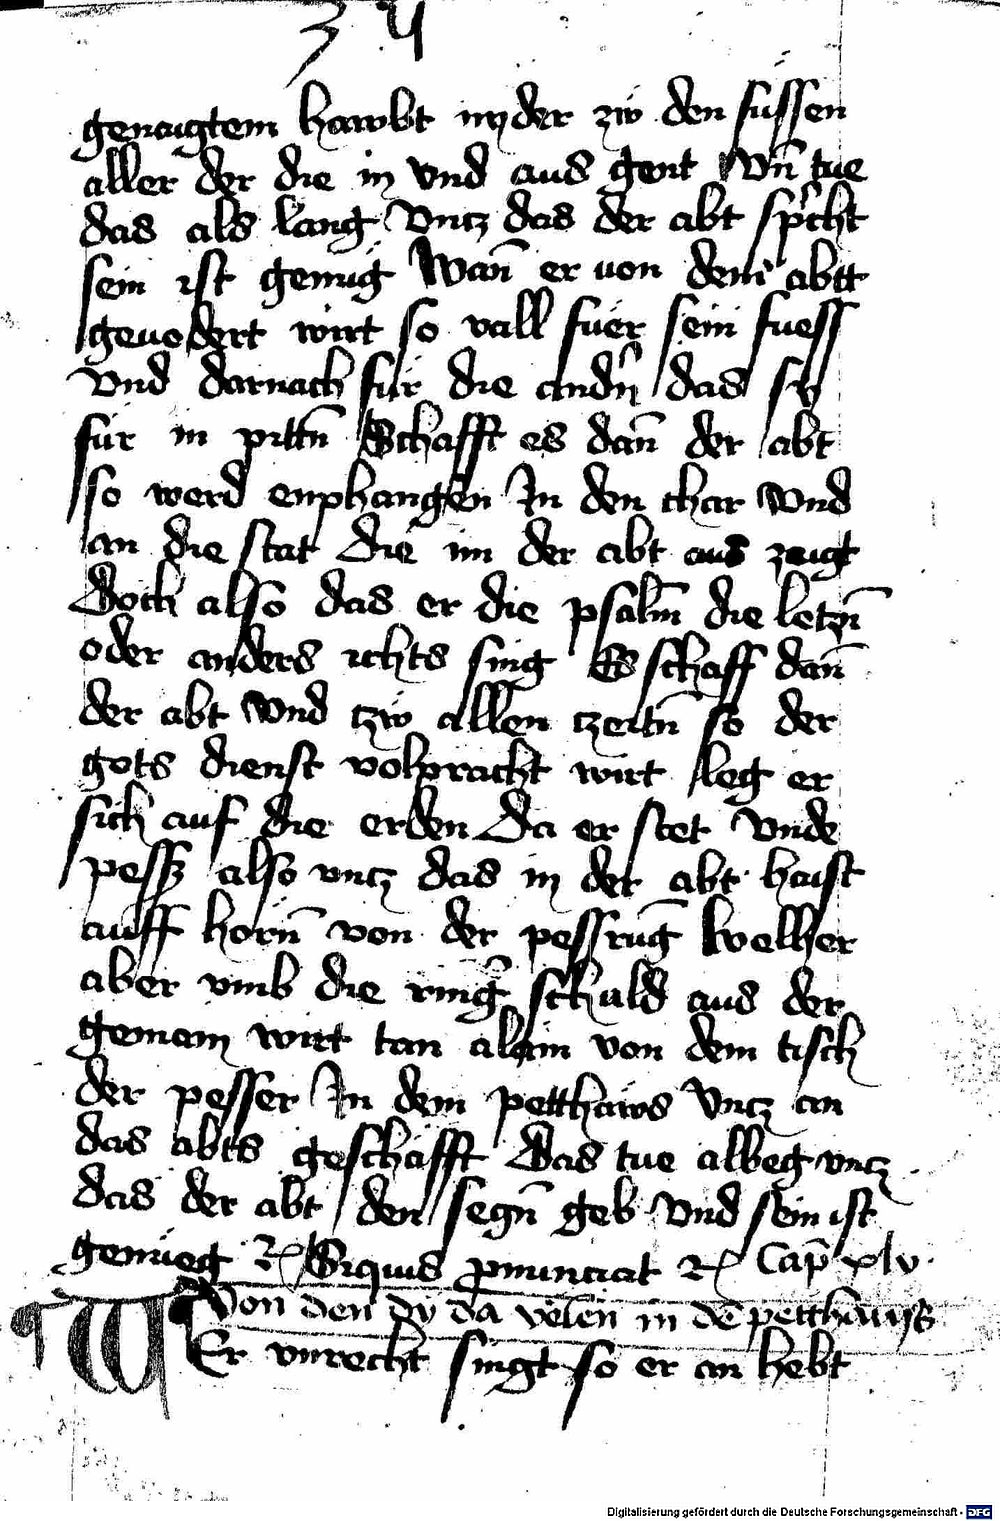 34
genaigtem hawbt nyder zw den fussen
aller der die in vnd aus gent Vn̄ tue
das als lang vntz das der abt sp'cht
sein ist genug Wan̄ er von dem abtt
geuodert wirt so vall fuer sein fuess
vnd darnach fur die andn̄ das sy
fur in pittn̄ Schafft es dan̄ der abt
so werd enphangen In den char vnd
an die stat Die im der abt aus zaigt
Doch also das er die psalm̄ die letzn̄
oder anders ichts sing Es schaff dan̄
der abt Vnd tzw allen tzeitn̄ so der
gots dienst volpracht wirt leg er
sich auf die erden Da er stet vnde
pessz also vntz das in der abt haist
auff horn̄ von der pessruḡ Welher
aber vmb die ring' schuld aus der
gemain wirt tan alain von dem tisch
der pesser In dem petthaws Vntz an
das abts geschafft Das tue albeg vntz
das der abt den segn̄ geb Vnd sein ist
genueg Siquis pnunciat Cap̄ xlv
Von den dy da velen in dē petthauss
WEr vnrecht singt so er an hebt
Digitalisierung gefördert durch die Deutsche Forschungsgemeinschaft - DFG